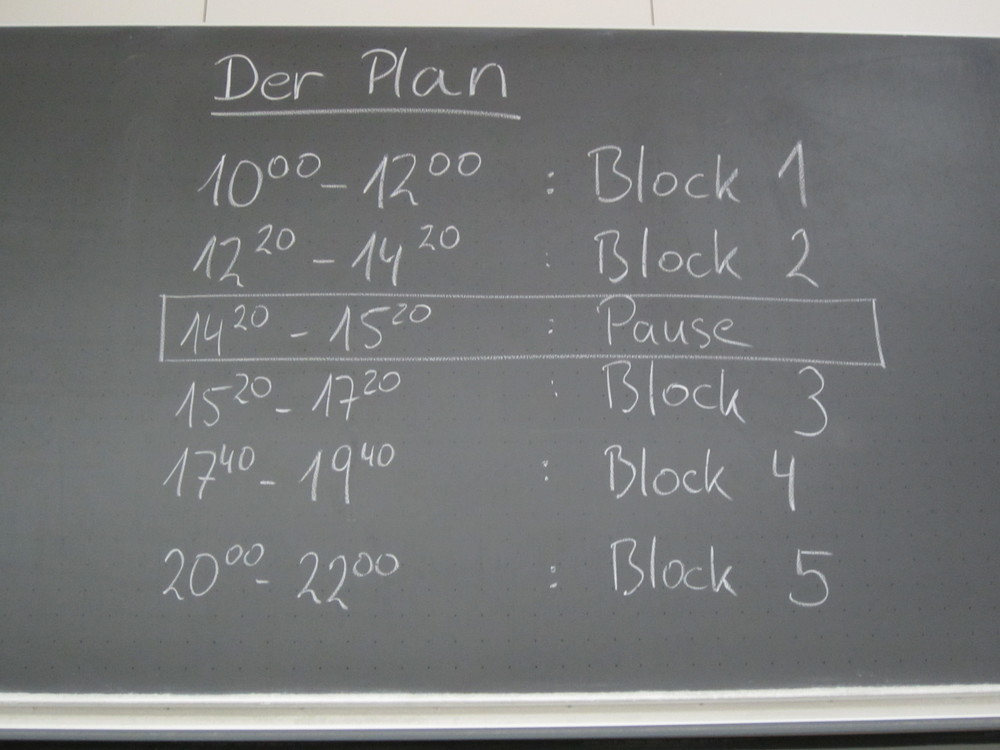 Der Plan
10⁰⁰ - 12⁰⁰ : Block 1
12²⁰ - 14²⁰ : Block 2
14²⁰ - 15²⁰ : Pause
15²⁰ - 17²⁰ : Block 3
17⁴⁰ - 19⁴⁰ : Block 4
20⁰⁰ - 22⁰⁰ : Block 5